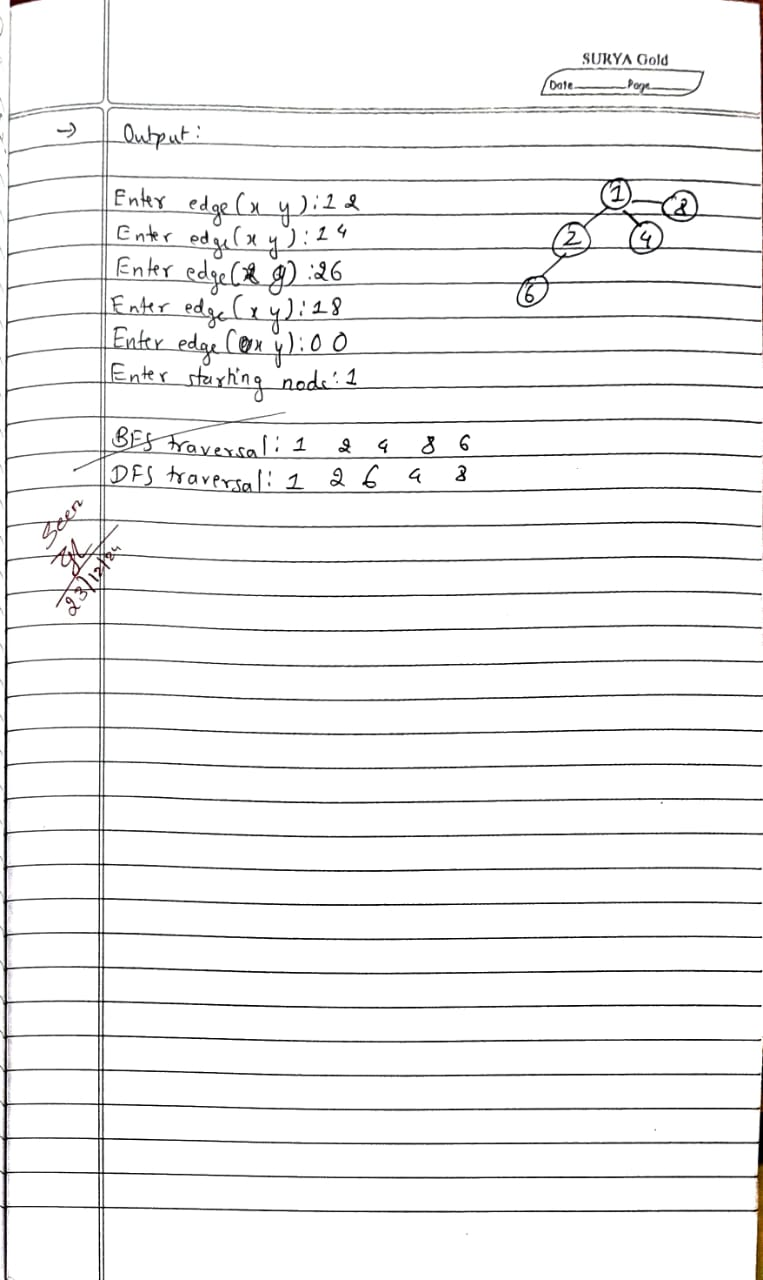 SURYA Gold
Date Page
→ Output:
Enter edge(x y):1 2
Enter edge(x y):1 4
Enter edge(x y):26
Enter edge(x y):18
Enter edge(x y):0 0
Enter starting node:1
1
8
2
4
6
BFS traversal: 1 2 4 8 6
DFS traversal: 1 2 6 4 8
Seen
23/12/24